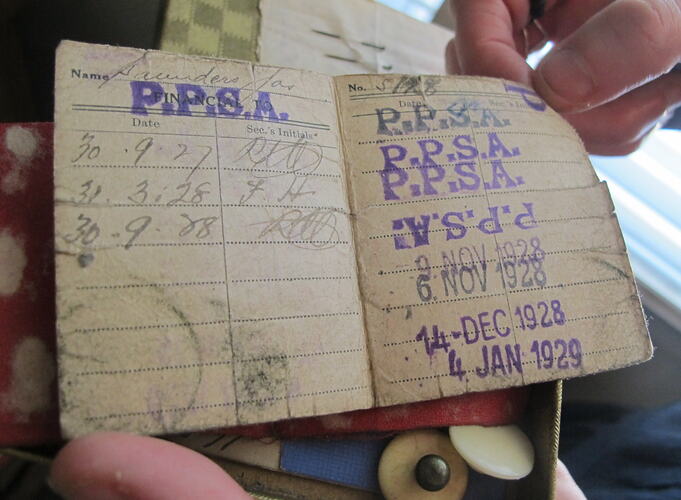 Name Saunders Jas
FINANCIAL TO
P.P.S.A.
Date Sec.'s Initials
30 . 9 . 27
31 . 3 . 28 F. H
30 . 9 . 28
No. 5128
Date Sec.'s
P.P.S.A.
P.P.S.A.
P.P.S.A.
P.P.S.A.
NOV 1928
6. NOV 1928
14-DEC 1928
4 JAN 1929